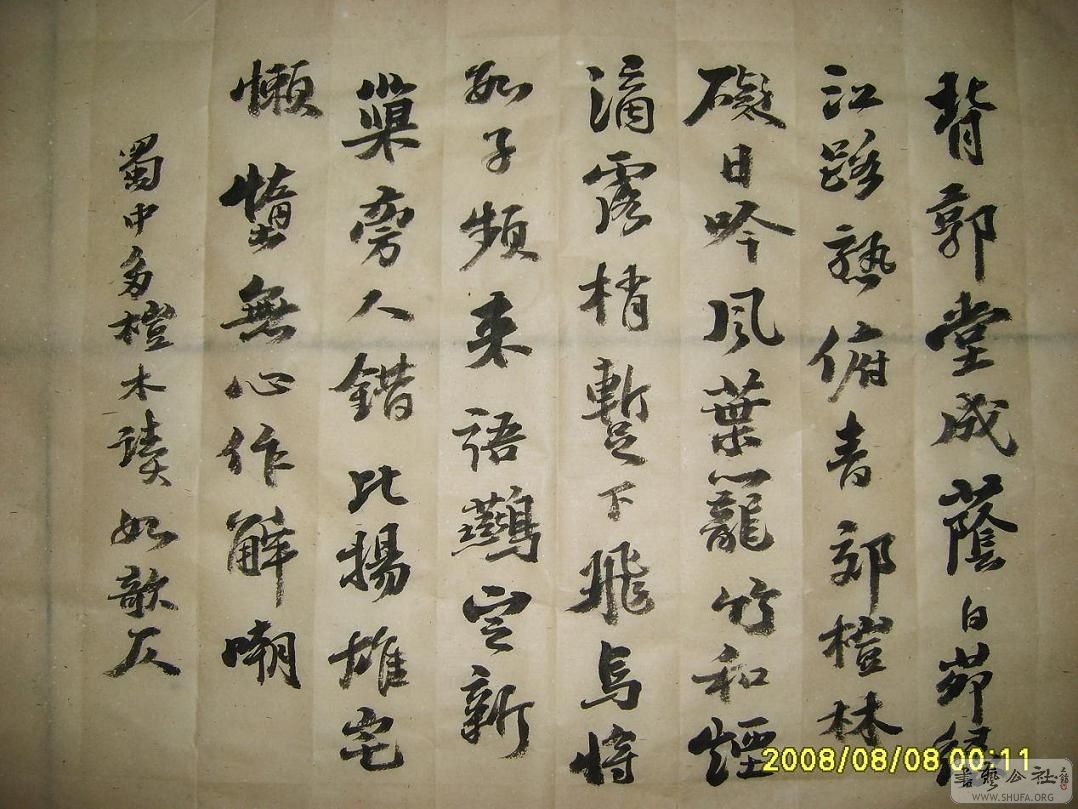 背郭堂成蔭白茅緣
江路熟俯青郊榿林
礙日吟風葉籠竹和煙
滴露梢暫下飛烏將
數子頻來語鷰定新
巢旁人錯比揚雄宅
懶惰無心作解嘲
蜀中多榿木讀如欹仄
2008/08/08 00:11
書藝公社
WWW.SHUFA.ORG